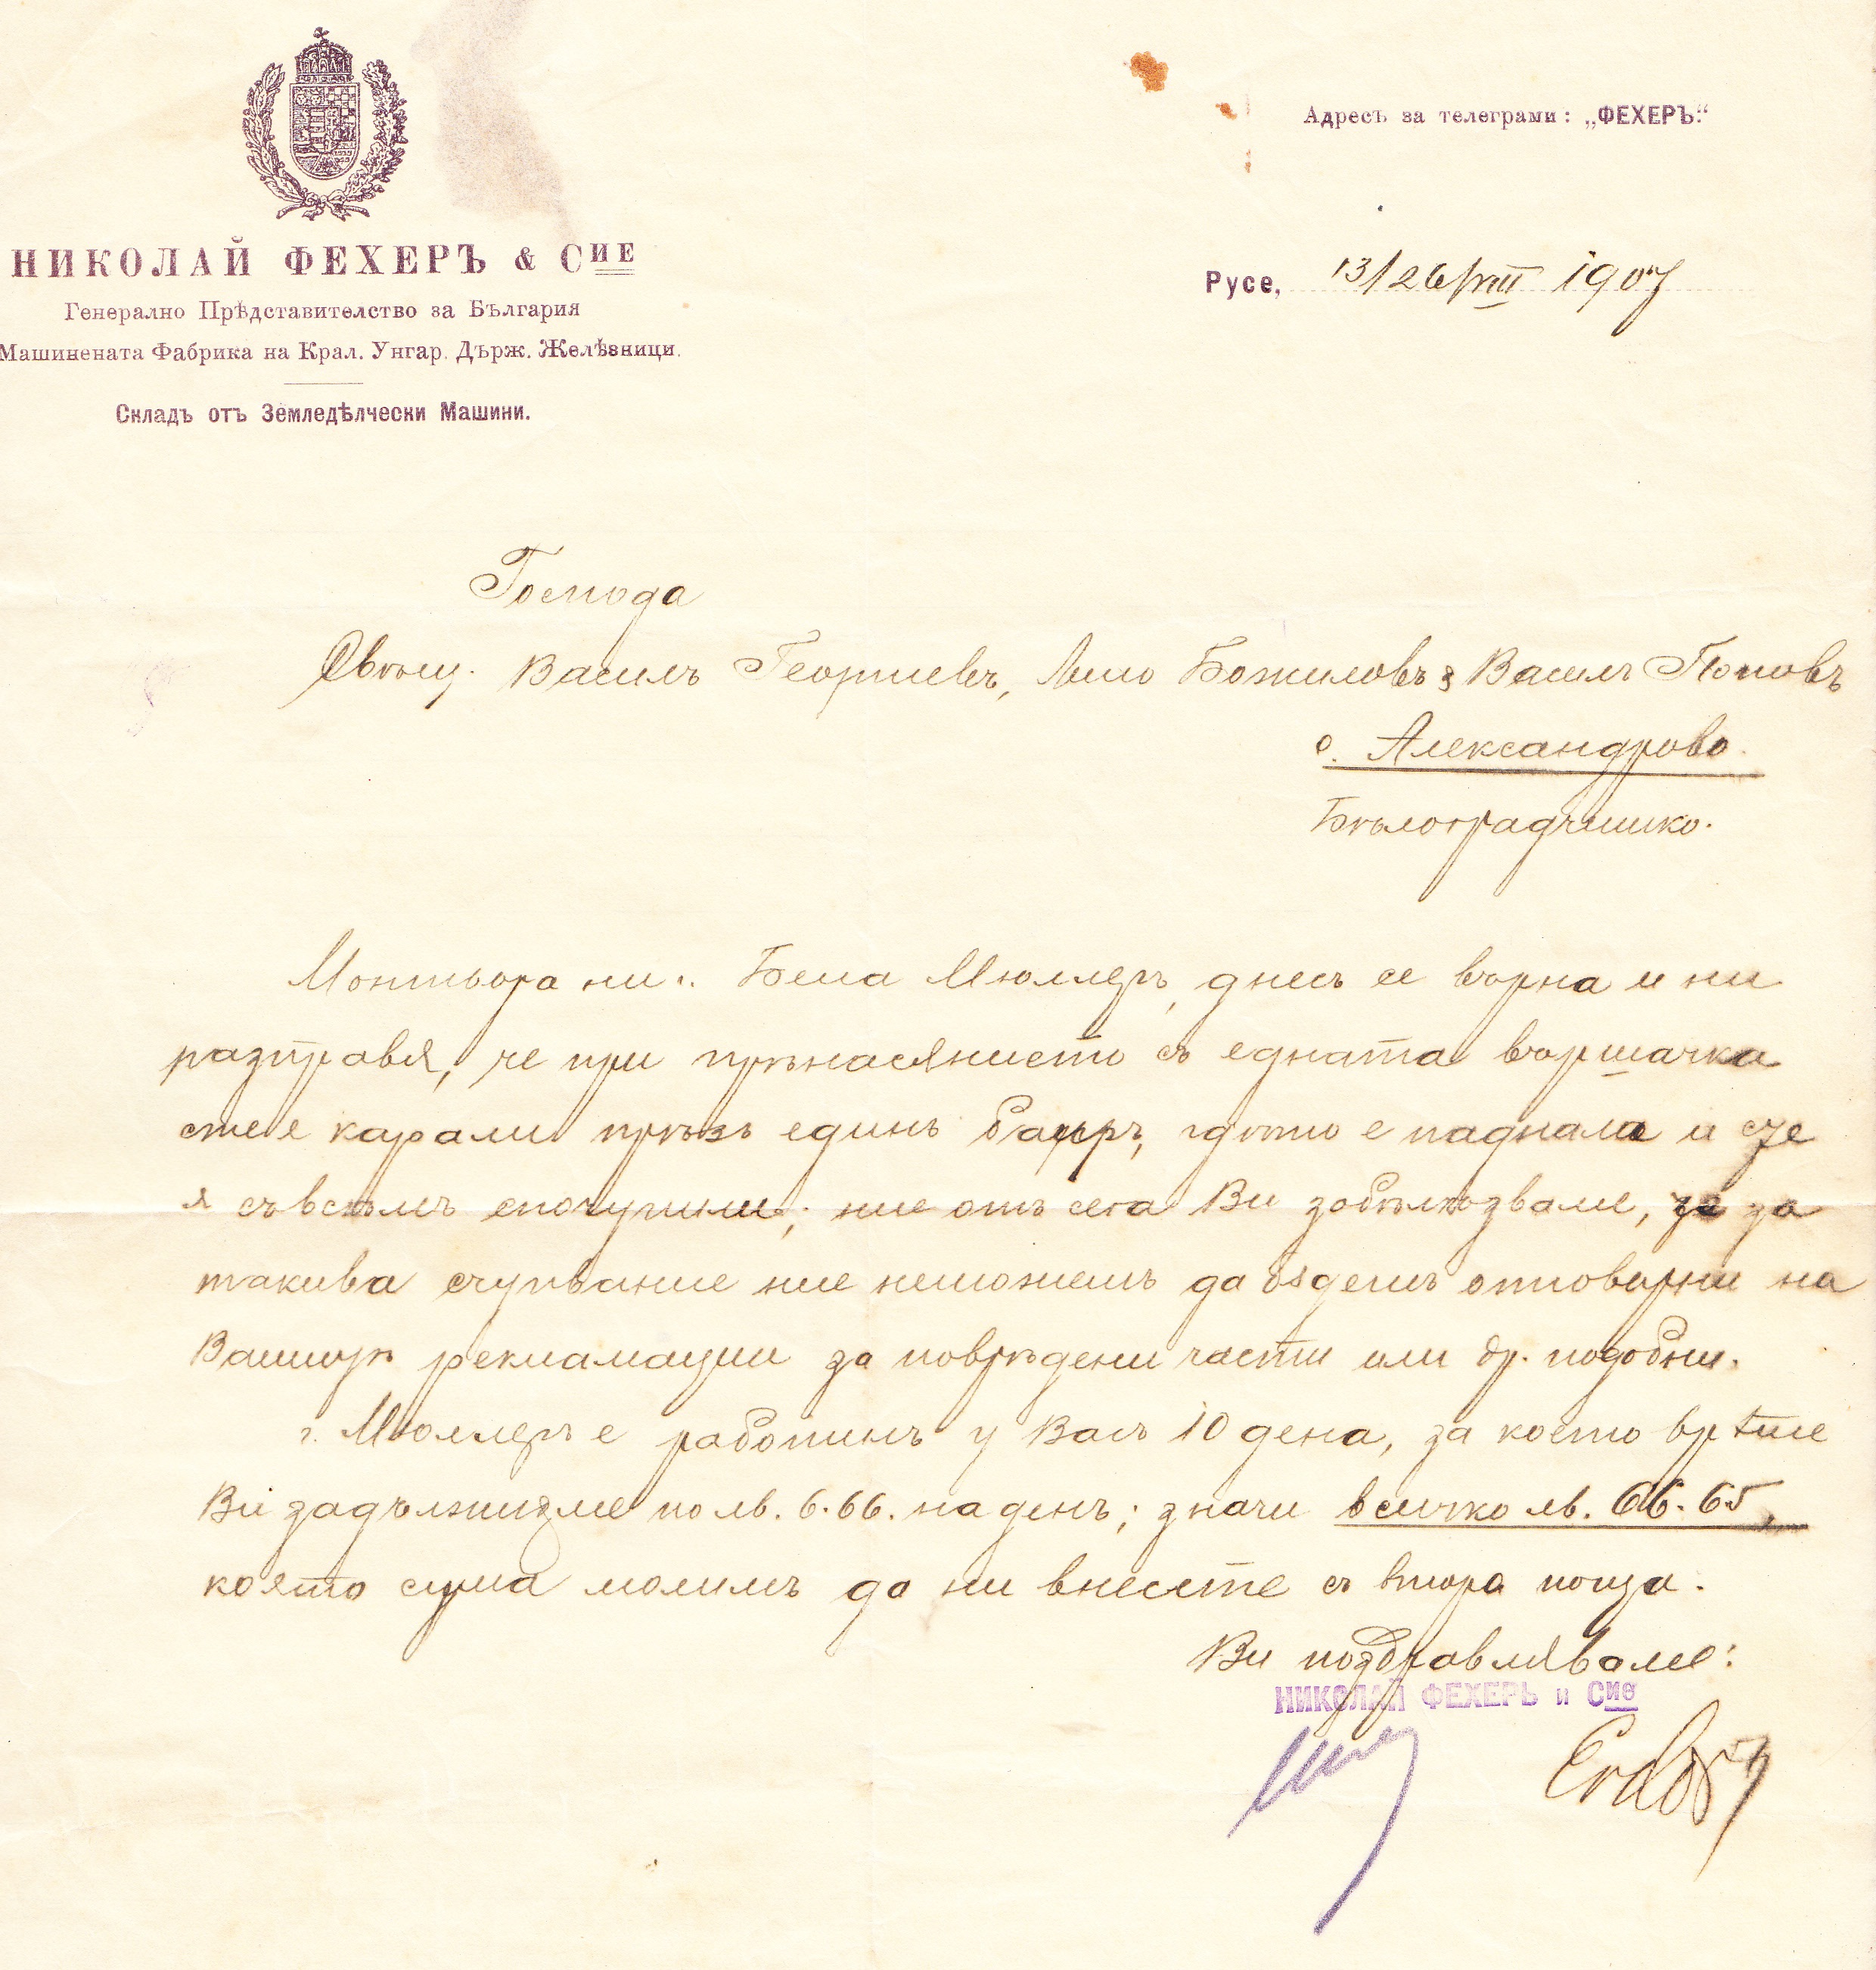 Адресъ за телеграми: „ФЕХЕРЪ.“
НИКОЛАЙ ФЕХЕРЪ & СИЕ
Генерално Прѣдставителство за България
Машинената Фабрика на Крал. Унгар. Държ. Желѣзници.
Складъ отъ Земледѣлчески Машини.
Русе, 13/26/VIII 1907
Господа
Василъ Георгиевъ, Божиловъ & Василъ Поповъ
с. Александрово.
Бѣлоградчишко.
Монтьора ни Бела Мюллеръ, днесъ се върна и ни
разправя, че при прѣнасянието съ едната вършачка
сте е карали прѣзъ единъ баиръ, гдѣто е паднала и сте
я съвсѣмъ счупили; ние отъ сега Ви забѣлѣзваме, че за
такива счупвание ние неможемъ да бѫдемъ отговорни на
Вашитѣ рекламации за поврѣдени части или др. подобни.
г. Мюллеръ е работилъ у Васъ 10 дена, за което врѣме
Ви задължихме по лв. 6.66. на денъ; значи всичко лв. 66.65,
която сума молимъ да ни внесете съ втора поща.
Ви поздравляваме:
НИКОЛАЙ ФЕХЕРЪ и Сие